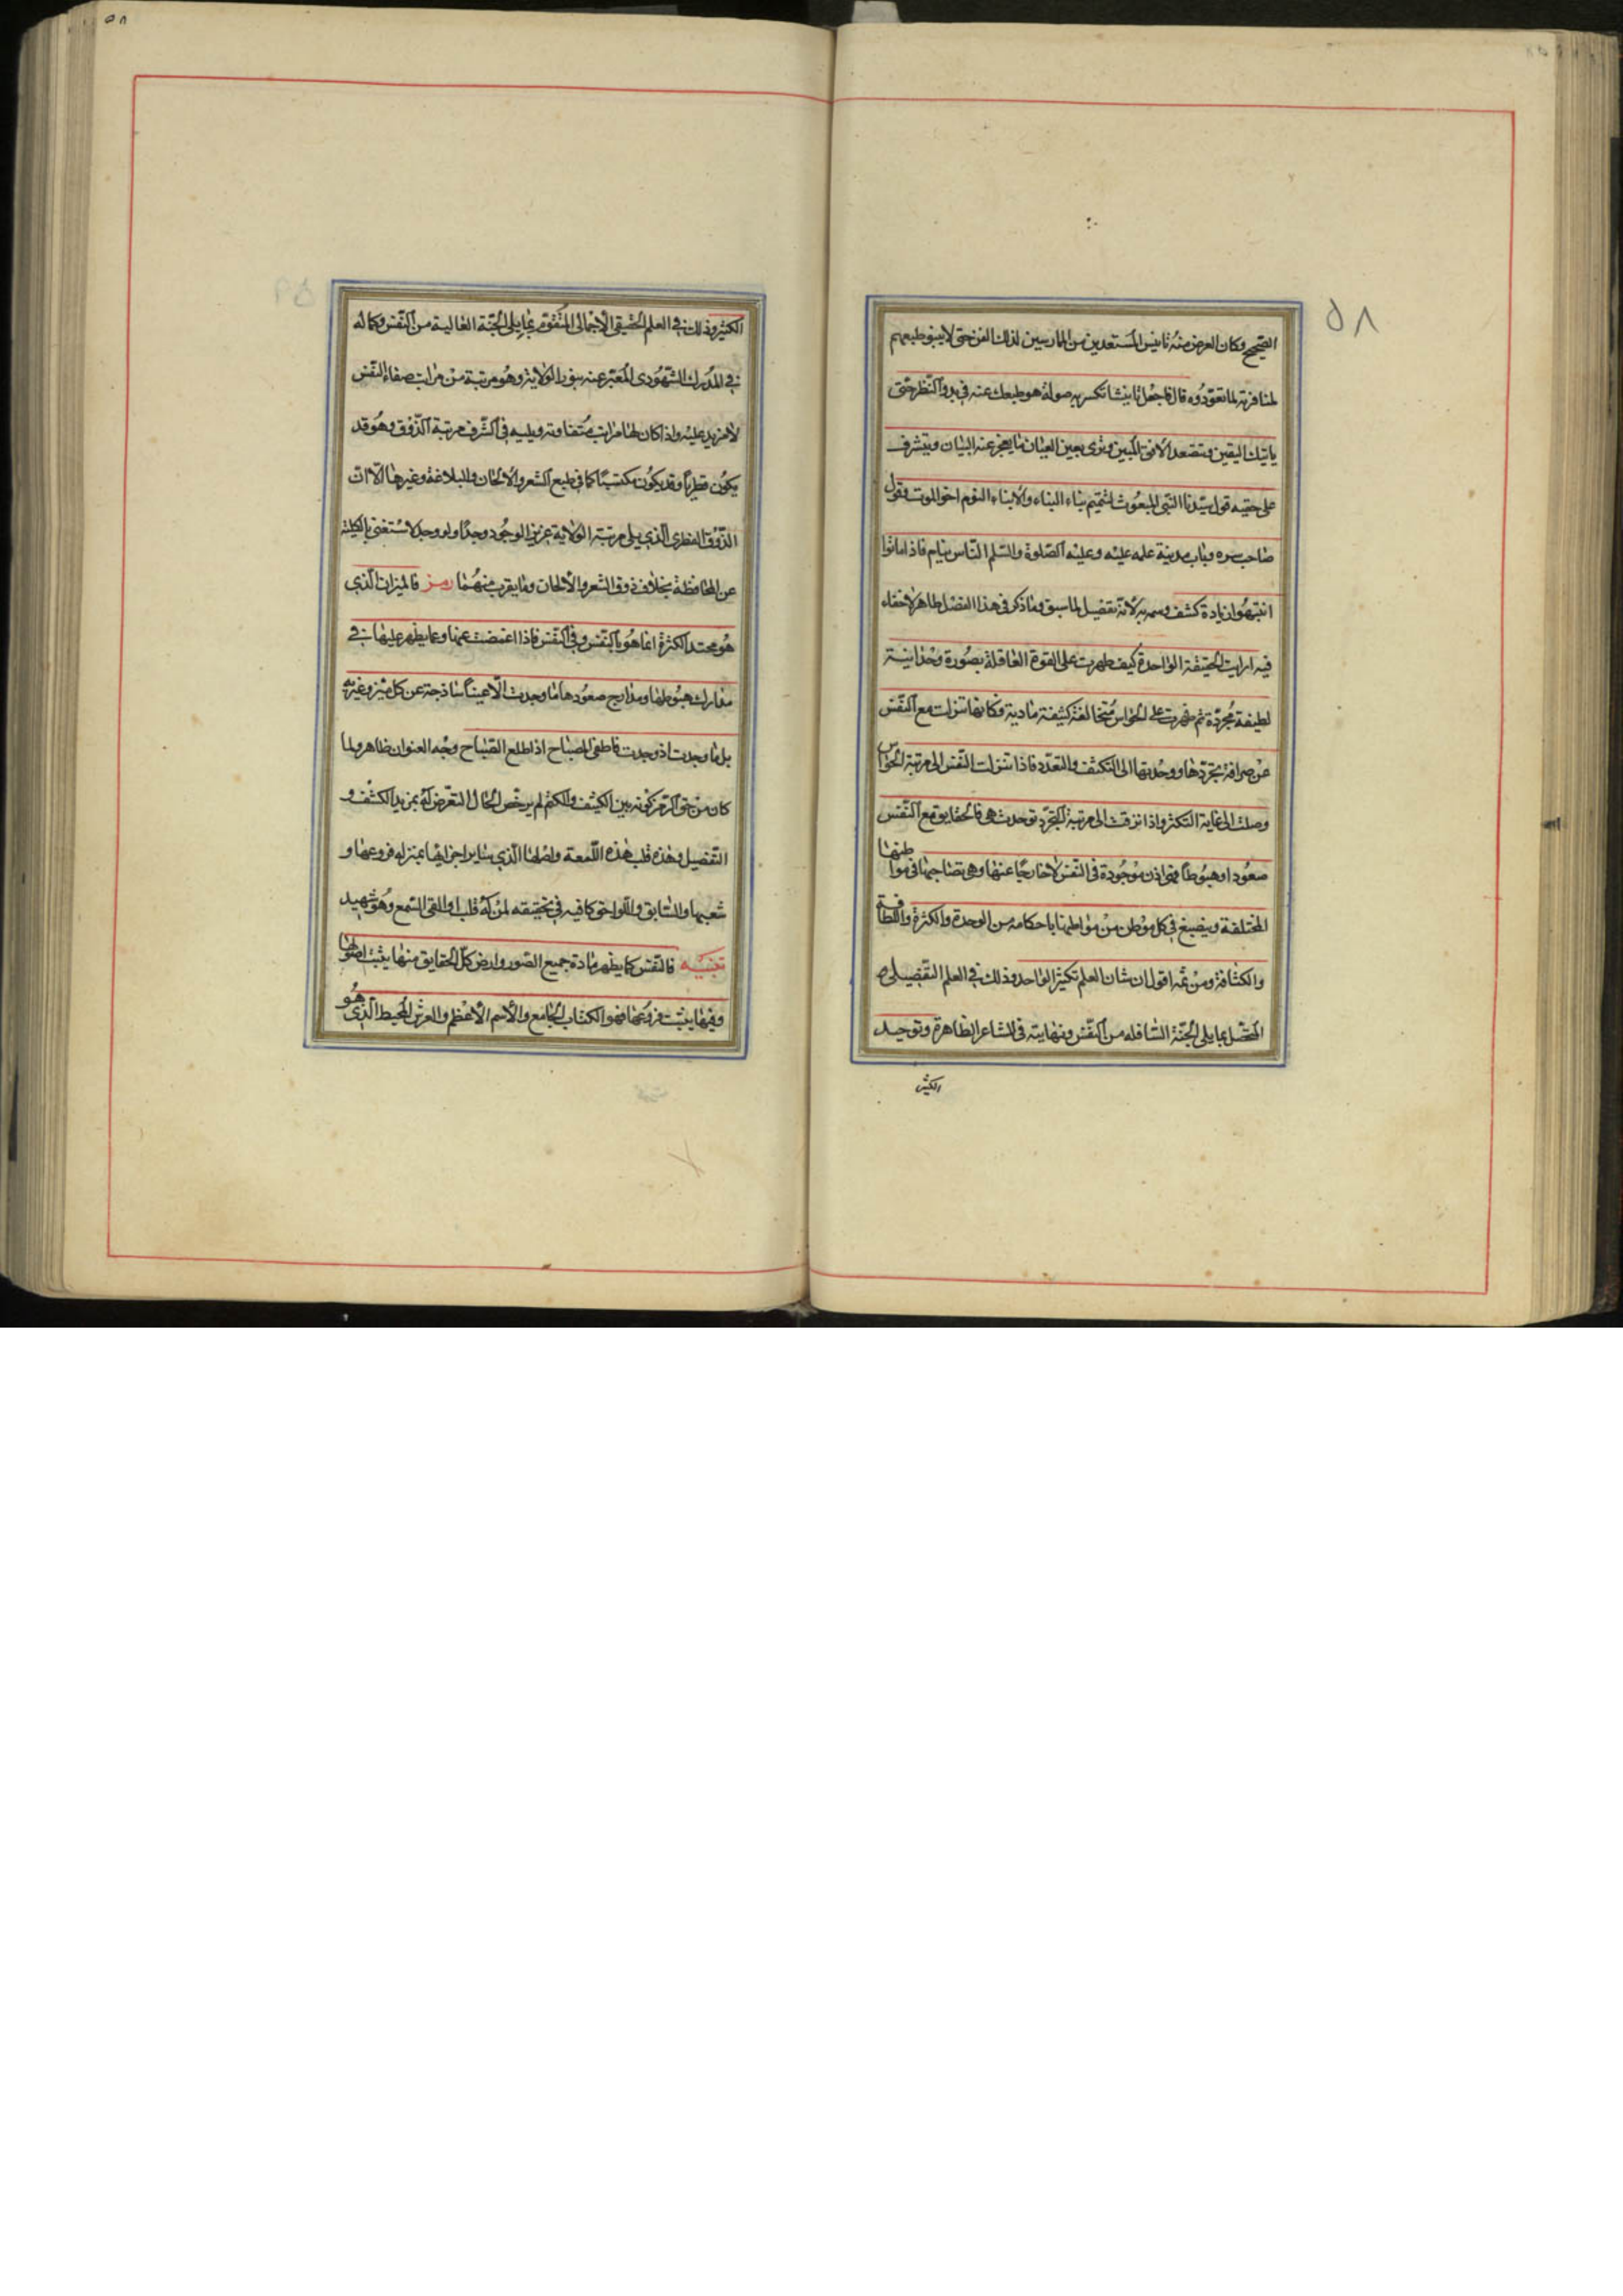 ٥٨
الصحيح وكان الغرض منه تانيس المستعدين من الممارسين لذلك الفن حتى لا ينبو طبعهم
لمنافرته لما تعودوه قال فاجعل تانيشا تكسر به صولة هو طبعك عنه في بدو النظر حتى
ياتيك اليقين وتصعد الافق المبين وترى بعين العيان ما يعجز عنه البيان ويتشرف
على حقيقة قول سيدنا النبي المبعوث لتتميم بناء البناء والانباء النوم اخو الموت وقول
صاحب سره وباب مدينة علمه عليه وعليه الصلوة والسلم الناس نيام فاذا ماتوا
انتبهوا زيادة كشف وسمه به لانه تفصيل لما سبق وما ذكر في هذا الفصل ظاهر لا خفاء
فيه ارايت الحقيقة الواحدة كيف ظهرت على القوة العاقلة بصورة وحدانية
لطيفة مجردة ثم ظهرت على الحواس متخالفة كثيفة مادية فكانها تنزلت مع النفس
عن صرافة تجردها ووحدتها الى التكثف والتعدد فاذا تنزلت النفس الى مرتبة الحواس
وصلت الى غاية التكثر واذا ترقت الى مرتبة التجرد توحدت هي فالحقايق مع النفس
صعودا وهبوطا فهي اذن موجودة في النفس لا خارجا عنها وهي تصاحبها في مواطنها
المختلفة وينصبغ في كل موطن من مواطنها باحكامه من الوحدة والكثرة واللطافة
والكثافة ومن ثمه اقول ان شان العلم تكثير الواحد وذلك في العلم التفصيلي
المحصل بما يلي الجنة السافله من النفس ونهايته في المشاعر الظاهرة وتوحيد
الكثير
الكثير وذلك في العلم الحقيقي الاجمالي المتقوم بما يلي الجنة العالية من النفس وكماله
في المدرك الشهودي المعبر عنه بنور الولاية وهو مرتبة من مراتب صفاء النفس
لا مزيد عليه واذا كان لها مراتب متفاوتة ويليه في الشرف مرتبة الذوق وهو قد
يكون فطريا وقد يكون مكتسبا كما في طبع الشعر والالحان والبلاغة وغيرها الا ان
الذوق الفطري الذي يلي مرتبة الولاية عزيز الوجود وجدا ولو وجد لاستغنى بالكلية
عن المحافظة بخلاف ذوق الشعر والالحان وما يقرب منهما رمز فالميزان الذي
هو محتد الكثرة انما هو بالنفس وفي النفس فاذا اغمضت عنها وعما يظهر عليها في
معارك هبوطها ومدارج صعودها ما وجدت الا عينا ساذجة عن كل ميز وغيرية
بل ما وجدت اذ وجدت فاطفي المصباح اذا طلع الصباح وجه العنوان ظاهر ولما
كان من حق الرمز كونه بين الكشف والكتم لم يرخص الحال التعرض له بمزيد الكشف و
التفصيل وهذه قلب هذه اللمعة واصلها الذي ساير اجزائها بمنزله فروعها و
شعبها والسابق واللواحق كافيه في تحقيقه لمن له قلب او القى السمع وهو شهيد
تنبيه فالنفس كما يظهر مادة جميع الصور وارض كل الحقايق منها ينبت اصولها
وفيها ينبت فروعها فهو الكتاب الجامع والاسم الاعظم والعرش المحيط الذي هو